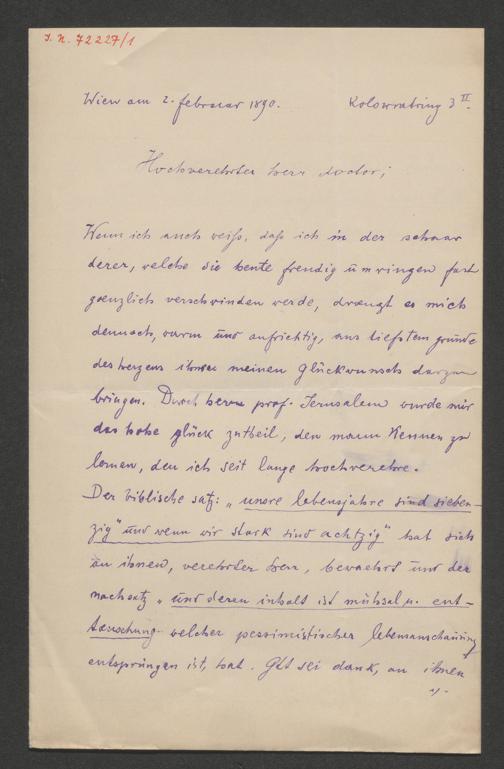 I. N. 72227/1
Wien am 2. februar 1890. Kolowratring 3 II.
Hochverehrter herr doctor;
Wenn ich auch weiss, dass ich in der schaar
derer, welche sie heute freudig ümringen fast
gænzlich verschwinden werde, drængt es mich
dennoch, warm ünd aufrichtig, aus tiefstem grunde
des herzens ihnen meinen Glückwunsch darzu
bringen. Durch herrn prof. Jerusalem wurde mir
das hohe glück zutheil, den mann kennen zu
lernen, den ich seit lange hochverehre.
Der biblische satz: „unsre lebensjahre sind sieben-
zig" ünd wenn wir stark sind achtzig" hat sich
an ihnen, verehrter herr, bewaehrt ünd der
nachsatz „ünd deren inhalt ist mühsal u. ent-
taeuschung welcher pessimistischer lebensanschauüng
entsprüngen ist, hat. Gtt sei dank, an ihnen